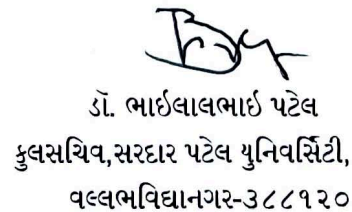 ડૉ. ભાઇલાલભાઇ પટેલ
કુલસચિવ,સરદાર પટેલ યુનિવર્સિટી,
વલ્લભવિદ્યાનગર-૩૮૮૧૨૦